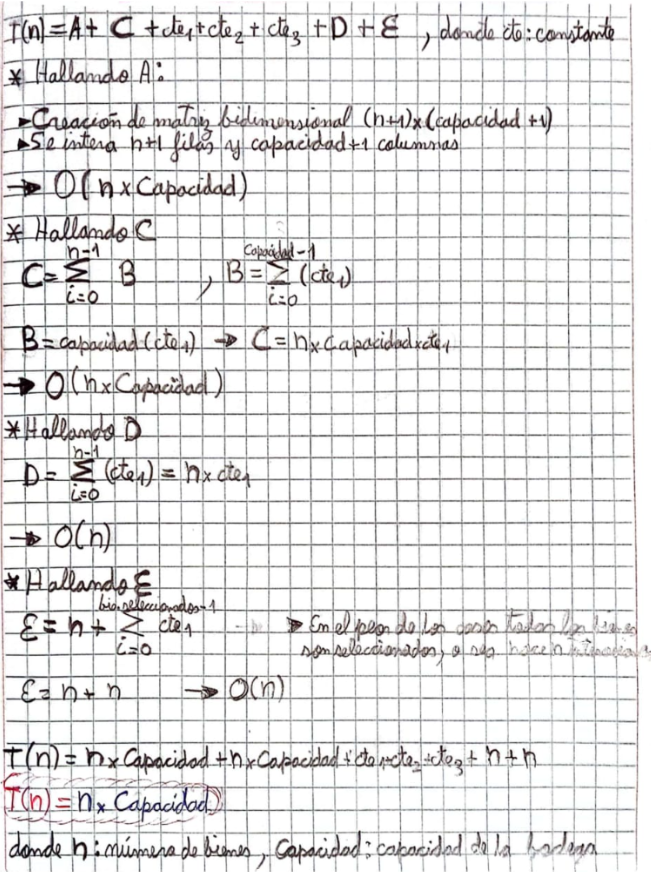 T(n) = A + C + cte₁ + cte₂ + cte₃ + D + E , donde cte: constante
* Hallando A:
▸ Creación de matriz bidimensional (n+1)x(capacidad +1)
▸ Se intera n+1 filas y capacidad+1 columnas
→ O(n x Capacidad)
* Hallando C
C = Σ_{i=0}^{n-1} B , B = Σ_{i=0}^{Capacidad-1} (cte₁)
B = capacidad (cte₁) → C = n x Capacidad x cte₁
→ O(n x Capacidad)
* Hallando D
D = Σ_{i=0}^{n-1} (cte₁) = n x cte₁
→ O(n)
* Hallando E
E = n + Σ_{i=0}^{bie.seleccionados-1} cte₁ ▸ En el peor de los casos todos los bienes
son seleccionados, o sea hace n
E = n + n → O(n)
T(n) = n x Capacidad + n x Capacidad + cte₁ + cte₂ + cte₃ + n + n
T(n) = n x Capacidad
donde n: número de bienes, Capacidad: capacidad de la bodega